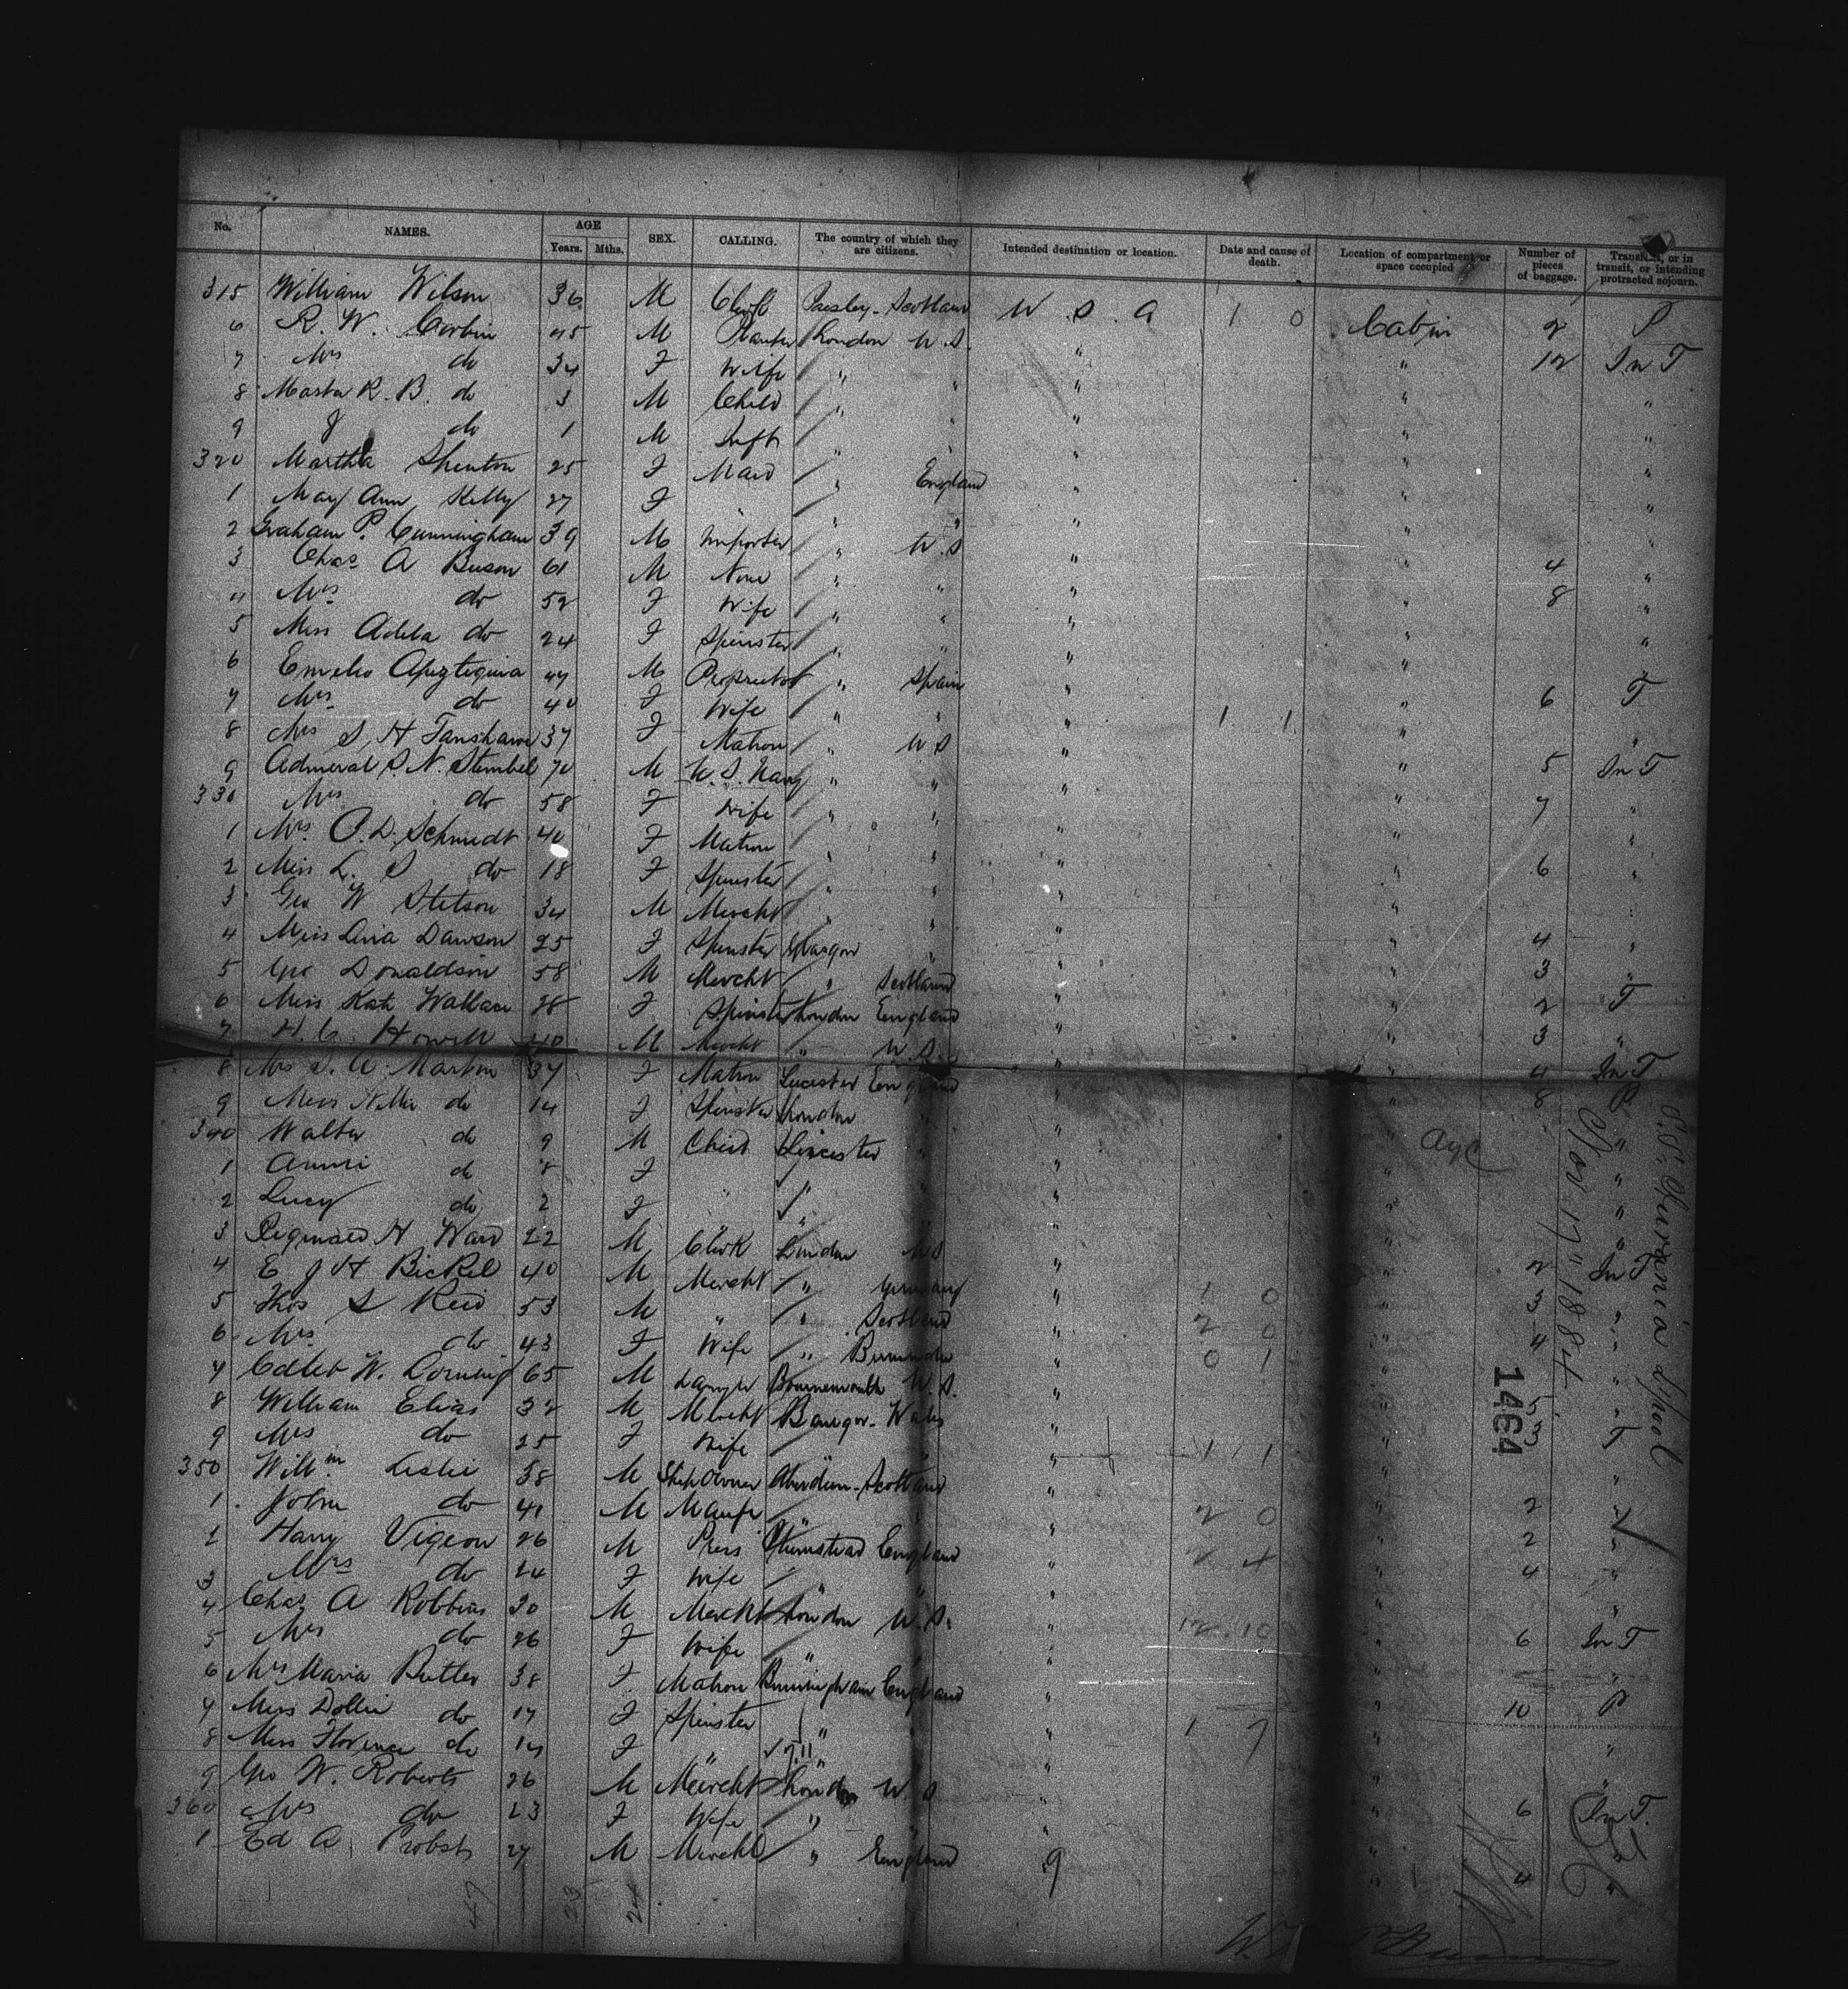 No. NAMES. AGE Years. Mths. SEX. CALLING. The country of which they are citizens. Intended destination or location. Date and cause of death. Location of compartment or space occupied Number of pieces of baggage. Transient, or in transit, or intending protracted sojourn.
315 William Wilson 36 M Clerk Scotland U.S.A 1 0 Cabin 2 P
6 R. W. Corbin 45 M Planter London U.S. " " 12 In T
7 Mrs do 34 F Wife " " " " "
8 Master R. B. do 3 M Child " " " " "
9 J do 1 M Inft " " " " "
320 Martha Shenton 25 F Maid " England " " "
1 Mary Ann Kelly 27 F " " " " "
2 Graham P. Cunningham 39 M Importer " U.S " " 4 "
3 Chas A Buson 61 M None " " " " 8 "
4 Mrs do 52 F Wife " " " " "
5 Miss Adela do 24 F Spinster " " " " "
6 Emelio 47 M Proprietor " Spain " " 6 T
7 Mrs do 40 F Wife " " " 1 1 " "
8 Mrs S. H Fanshawe 37 F Matron " U S " " 5 In T
9 Admiral S. N. Stembel 70 M U.S. Navy " " " " 7 "
330 Mrs do 58 F Wife " " " " "
1 Mrs. O. D. Schmidt 40 F Matron " " " " 6 "
2 Miss L. S do 18 F Spinster " " " " "
3 Geo W Stetson 34 M Mercht " " " " 4 "
4 Miss Lina Dawson 25 F Spinster Glasgow " " " 3 "
5 Geo Donaldson 58 M Mercht " Scotland " " 2 T
6 Miss Kate Wallace 28 F Spinster London England " " 3 "
7 H. C. Howell 40 M Mercht " U.S. " " 4 In T
8 Mrs S. A. Martin 37 F Matron Leicester England " " 8 P
9 Miss Nellie do 14 F Spinster London " " " "
340 Walter do 9 M Child Leicester " " " "
1 Annie do 8 F " " " " "
2 Lucy do 2 F " " " " "
3 Reginald H Ward 22 M Clerk London U S " " 2 In T
4 E J H Bickel 40 M Mercht " Germany " 1 0 " 3 "
5 Thos S Reid 53 M " " Scotland " 2 0 " 4 "
6 Mrs do 43 F Wife " Bermuda " 0 1 " "
7 W. Corning 65 M Lawyer Bournemouth U.S. " " 5 "
8 William Elias 32 M Mercht Bangor - Wales " " 3 T
9 Mrs do 25 F Wife " " " 1 1 " "
350 Willm Leslie 38 M Ship Owner Aberdeen - Scotland " " 2 "
1 John do 41 M Manfr " " " 2 0 " 2 "
2 Harry Vigeon 26 M England " 2 4 " 4 "
3 Mrs do 24 F Wife " " " " "
4 Chas A Robbins 30 M Mercht London U.S. " 12.10 " 6 In T
5 Mrs do 26 F Wife " " " " "
6 Mrs Maria Butler 38 F Matron Birmingham England " " 10 P
7 Miss Dollie do 17 F Spinster " " " 1 7 " "
8 Miss Florence do 14 F " " " " " "
9 Geo W. Roberts 26 M Mercht London U S " " 6 In T.
360 Mrs do 23 F Wife " " " " "
1 Ed A. Probst 27 M Mercht " England 9 " 4 "
47 23 24
Nov 17" 1884
1464